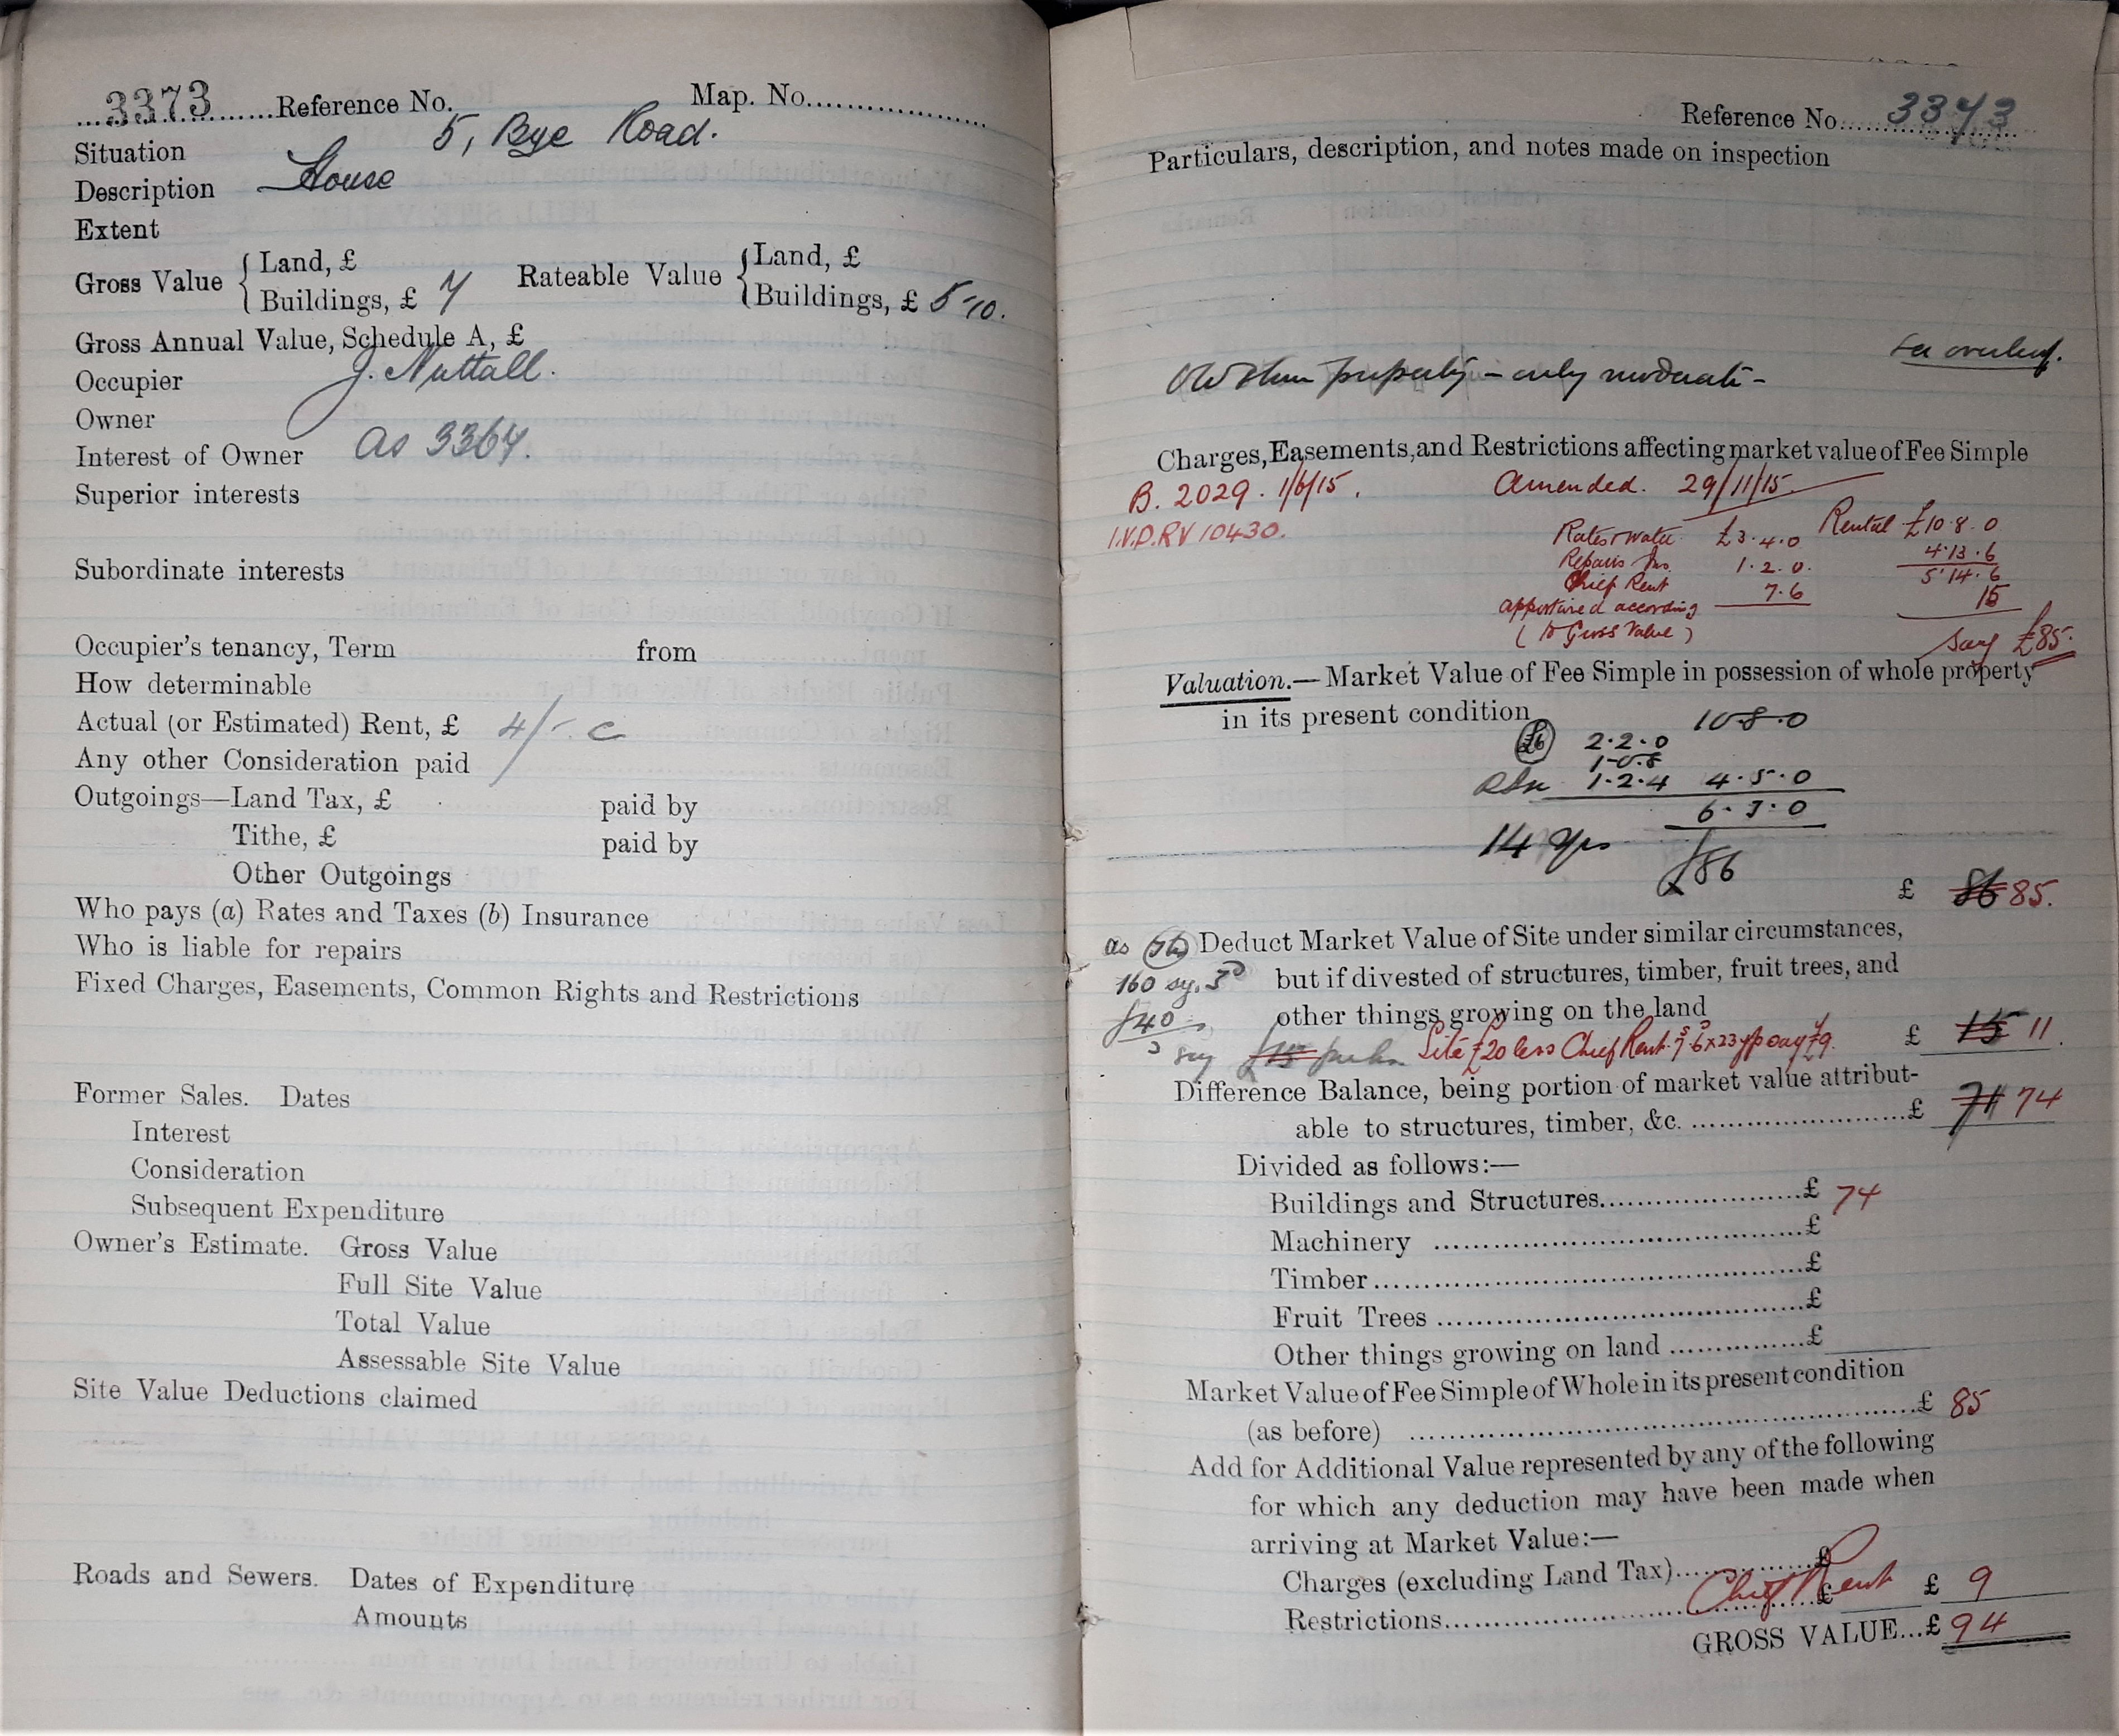 3373 Reference No. Map. No.
Situation 5, Bye Road.
Description House
Extent
Gross Value { Land, £ Rateable Value { Land, £
Buildings, £ 7 Buildings, £ 5-10.
Gross Annual Value, Schedule A, £
Occupier J. Nuttall.
Owner
Interest of Owner as 3364.
Superior interests
Subordinate interests
Occupier's tenancy, Term from
How determinable
Actual (or Estimated) Rent, £ 4/-. c
Any other Consideration paid
Outgoings—Land Tax, £ paid by
Tithe, £ paid by
Other Outgoings
Who pays (a) Rates and Taxes (b) Insurance
Who is liable for repairs
Fixed Charges, Easements, Common Rights and Restrictions
Former Sales. Dates
Interest
Consideration
Subsequent Expenditure
Owner's Estimate. Gross Value
Full Site Value
Total Value
Assessable Site Value
Site Value Deductions claimed
Roads and Sewers. Dates of Expenditure
Amounts
Reference No. 3373
Particulars, description, and notes made on inspection
See overleaf.
property - only moderate -
Charges, Easements, and Restrictions affecting market value of Fee Simple
B. 2029. 1/6/15. Amended. 29/11/15.
I.V.D. RV 10430.
Rates & water £3.4.0 Rental £10.8.0
4.13.6
Repairs Ins. 1.2.0. 5.14.6
Chief Rent 7.6 15
apportioned according
(to Gross Value) say £85.
Valuation.—Market Value of Fee Simple in possession of whole property
in its present condition
10-8-0
2.2.0
1-0.8
1.2.4 4.5.0
6.3.0
14 yrs £86
£ 86 85.
as (76) Deduct Market Value of Site under similar circumstances,
160 sq. but if divested of structures, timber, fruit trees, and
£40 other things growing on the land
say £15 Site £20 less Chief Rent 7/6 x 23 yp say £9. £ 15 11.
Difference Balance, being portion of market value attribut-
able to structures, timber, &c. £ 71 74
Divided as follows:—
Buildings and Structures £ 74
Machinery £
Timber £
Fruit Trees £
Other things growing on land £
Market Value of Fee Simple of Whole in its present condition
(as before) £ 85
Add for Additional Value represented by any of the following
for which any deduction may have been made when
arriving at Market Value:—
Charges (excluding Land Tax) £
Restrictions £ Chief Rent £ 9
GROSS VALUE...£ 94